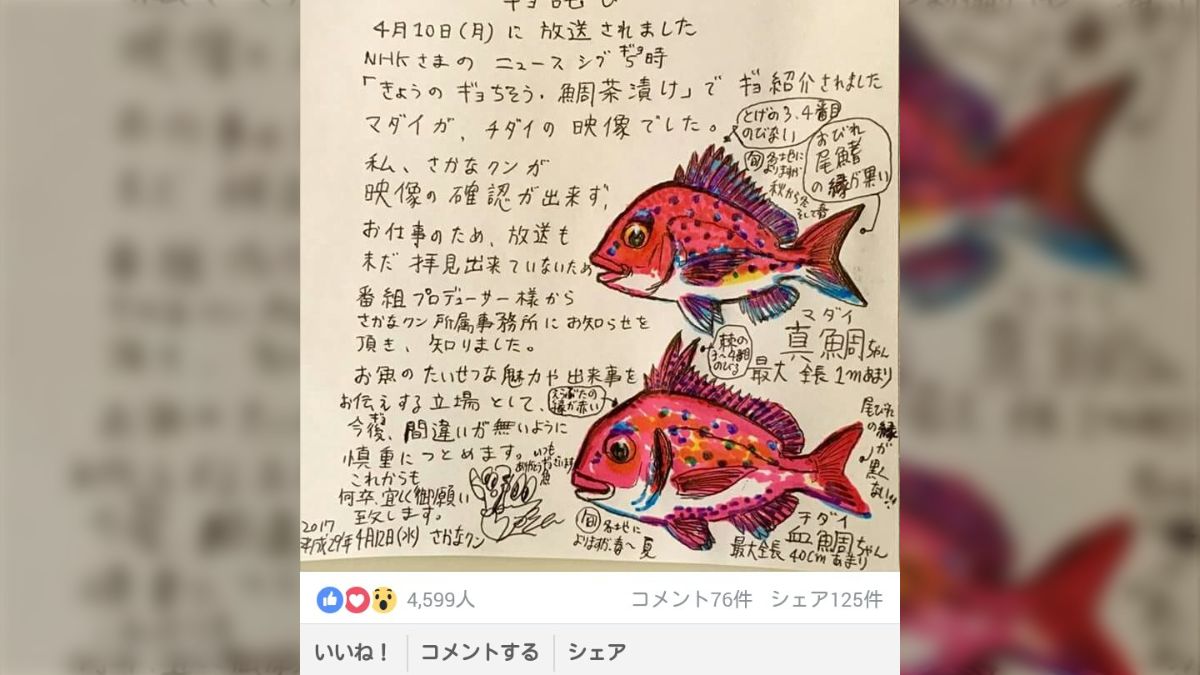 4月10日(月)に 放送されました
NHKさまの ニュース シブ5時
ギョ
「きょうの ギョちそう・鯛茶漬け」で ギョ紹介されました
マダイが、チダイの 映像でした。
私、さかなクンが
映像の確認が出来ず、
お仕事のため、放送も
未だ 拝見出来ていないため
番組プロデューサー様から
さかなクン所属事務所にお知らせを
頂き、知りました。
お魚の たいせつな魅力や出来事を
お伝えする立場として、
今後、間違いが無いように
ギョ
慎重につとめます。
いつも
ありがとうギョざいます
魚
これからも
何卒、宜しく御願い
致します。
2017
平成29年4月12日(水) さかなクン
とげの3、4番目
のびない
旬 各地に
よりますが
秋から冬
そして春
おびれ
尾鰭
の縁が黒い
マダイ
真鯛ちゃん
最大 全長 1mあまり
棘の
3〜4番目
のびる
えらぶたの
縁が赤い
尾びれ
の縁
が
黒く
ない!!
旬 各地に
よりますが、春〜夏
チダイ
血鯛ちゃん
最大全長 40cmあまり
4,599人
コメント76件 シェア125件
いいね! コメントする シェア